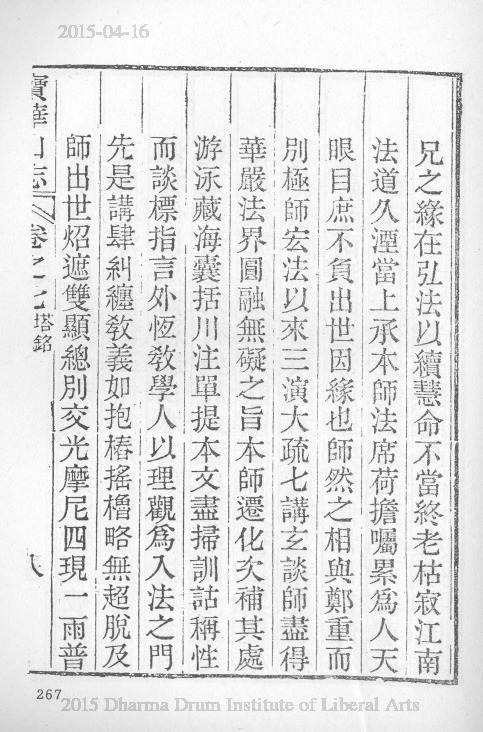 2015-04-16
兄之緣在弘法以續慧命不當終老枯寂江南
法道久湮當上承本師法席荷擔囑累爲人天
眼目庶不負出世因緣也師然之相與鄭重而
別極師宏法以來三演大疏七講玄談師盡得
華嚴法界圓融無礙之旨本師遷化次補其處
游泳藏海囊括川注單提本文盡掃訓詁稱性
而談標指言外恆敎學人以理觀爲入法之門
先是講肆糾纏敎義如抱樁搖櫓略無超脫及
師出世炤遮雙顯總別交光摩尼四現一雨普
寶華山志 卷之七 塔銘 八
267
2015 Dharma Drum Institute of Liberal Arts